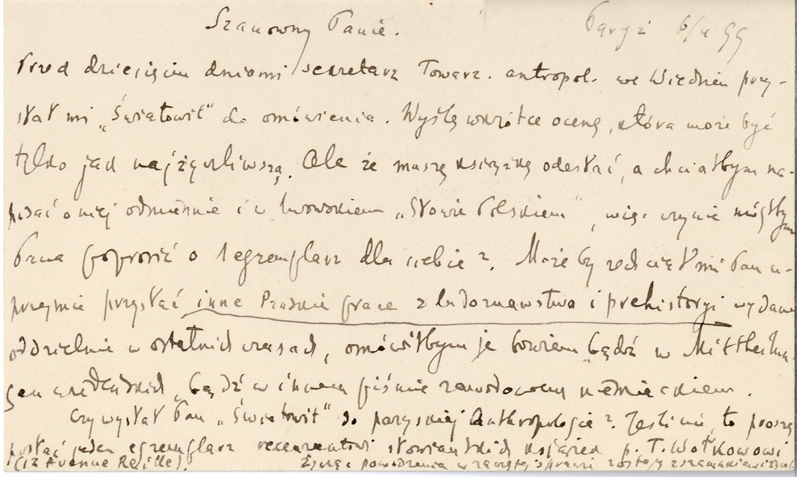 Szanowny Panie. Paryż 6/X 99
Przed dziesięciu dniami sekretarz Towarz. antropol. we Wiedniu przy-
słał mi „Światowit" do omówienia. Wyślę wkrótce ocenę, która może być
tylko jak najżyczliwszą. Ale że muszę książkę odesłać, a chciałbym na-
pisać o niej odmiennie i w lwowskiem „Słowie Polskiem", więc czy nie mógłbym
Pana poprosić o 1 egzemplarz dla siebie? Może by zechciał mi Pan u-
przejmie przysłać inne Pańskie prace z ludoznawstwa i prehistoryi wydane
oddzielnie w ostatnich czasach, omówiłbym je bowiem bądź w Mittheilun-
gen wiedeńskich, bądź w innem piśmie zawodowem niemieckiem.
Czy wysłał Pan „Światowit" do paryskiej Anthropologie? Jeśli nie, to proszę
posłać jeden egzemplarz recenzentowi słowiańskich książek p. T. Wołkowowi
(12 Avenue Reille). Życząc powodzenia w zaczętej sprawie zostaję z szanowaniem